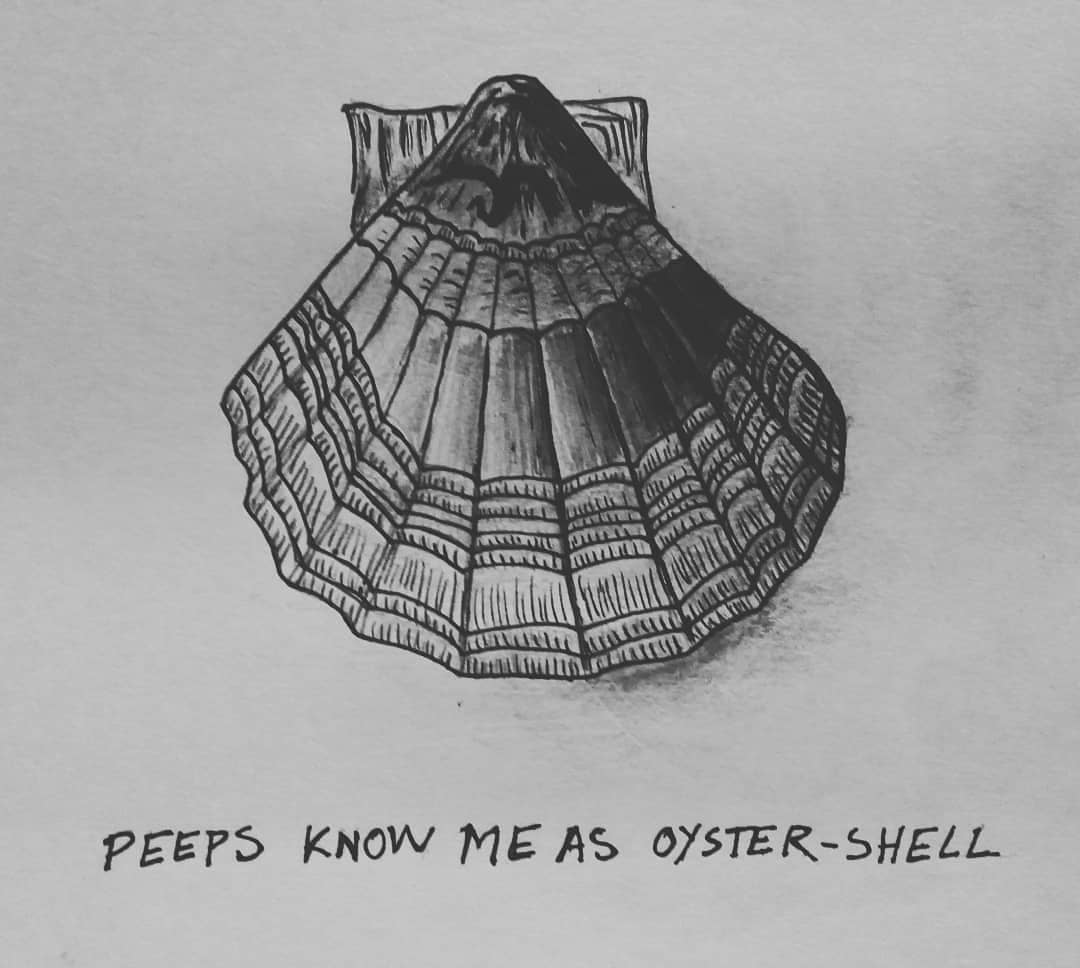 PEEPS KNOW ME AS OYSTER-SHELL